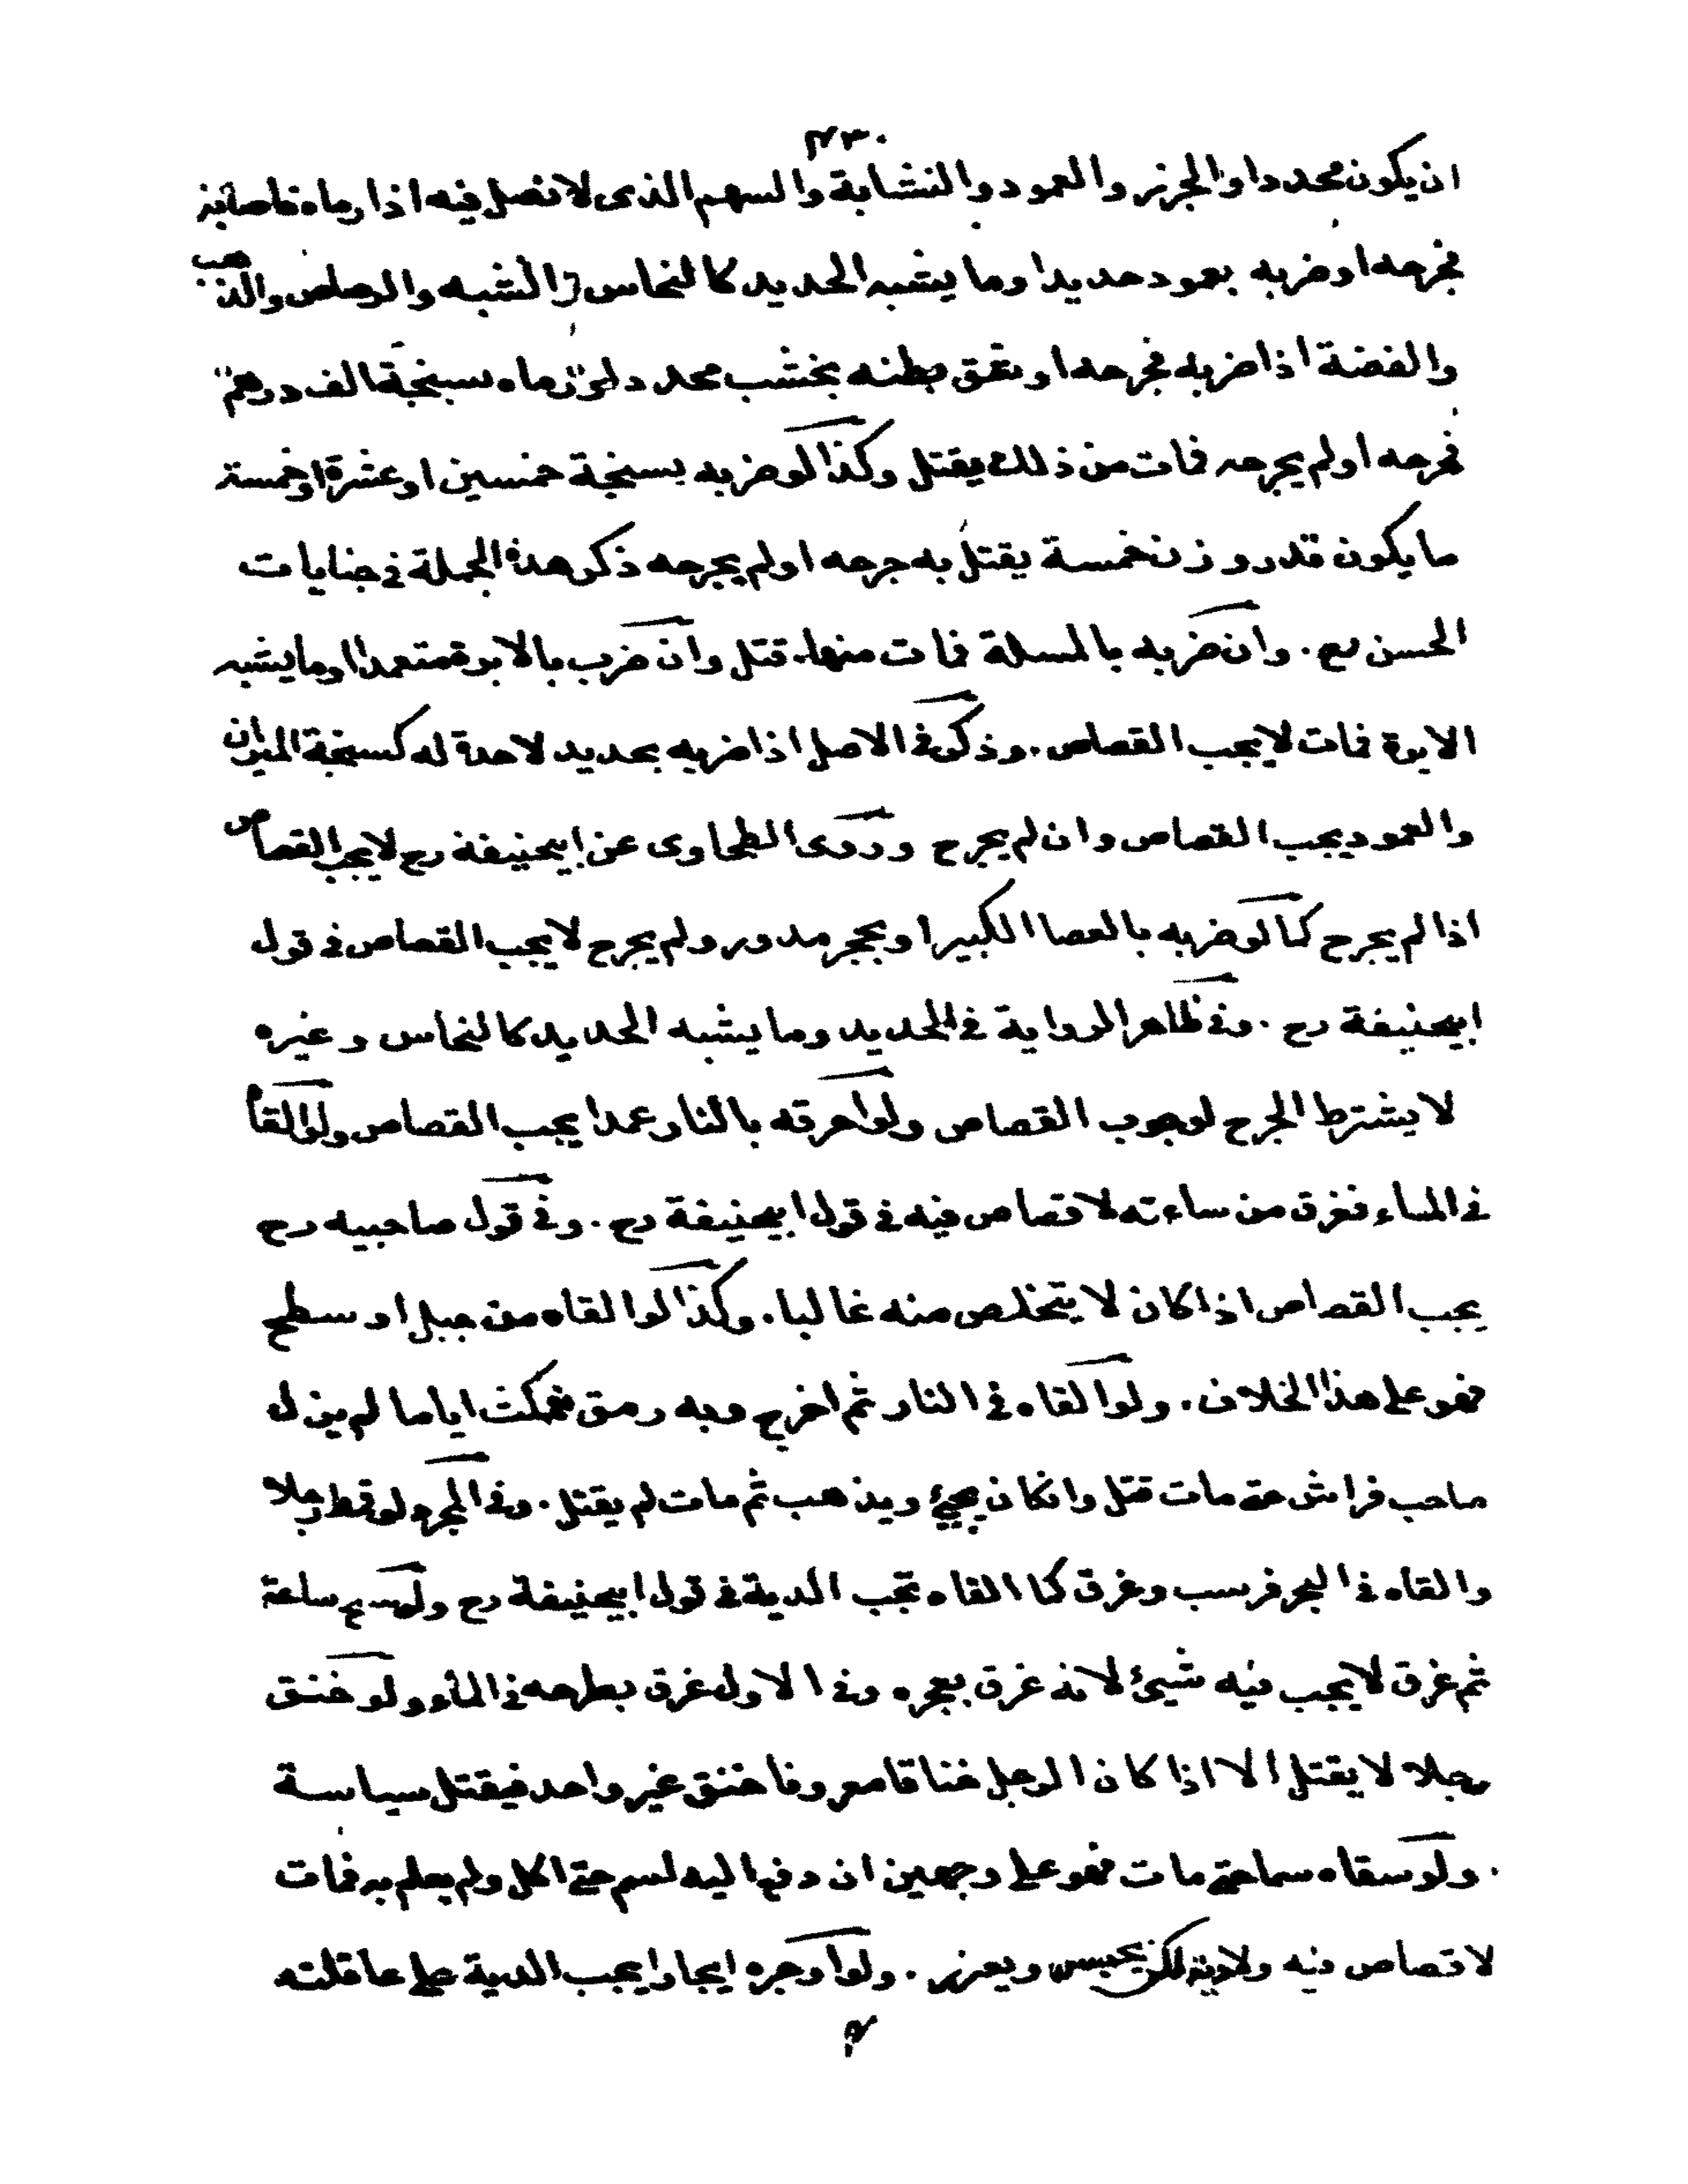 ٤٣٠
ان يكون محددا والجزر والعمود والنشابة والسهم الذى لا نصل فيه اذا رماه فاصابه
فجرحه او ضربه بعمود حديد او ما يشبه الحديد كالنحاس والشبه والرصاص والذهب
والفضة اذا ضربه فجرحه او شق بطنه بخشب محدد او رماه بسنجة الف درهم
فجرحه او لم يجرحه فمات من ذلك يقتل وكذا لو ضربه بسنجة خمسين او عشرة او خمسة
ما يكون قدر وزن خمسة يقتل به جرحه او لم يجرحه ذكر هذه الجملة فى جنايات
الحسن رح . وان ضربه بالمسلة فمات منها قتل وان ضرب بالابرة متعمدا او ما يشبه
الابرة فمات لا يجب القصاص . وذكر فى الاصل اذا ضربه بحديد لا حدة له كسنجة الميزان
والعمود يجب القصاص وان لم يجرح وروى الطحاوى عن ابيحنيفة رح لا يجب القصاص
اذا لم يجرح كما لو ضربه بالعصا الكبير او بحجر مدور ولم يجرح لا يجب القصاص فى قول
ابيحنيفة رح . وفى ظاهر الرواية فى الحديد وما يشبه الحديد كالنحاس وغيره
لا يشترط الجرح لوجوب القصاص ولو احرقه بالنار عمدا يجب القصاص ولو القاه
فى الماء فغرق من ساعته لا قصاص فيه فى قول ابيحنيفة رح . وفى قول صاحبيه رح
يجب القصاص اذا كان لا يتخلص منه غالبا . وكذا لو القاه من جبل او سطح
فهو على هذا الخلاف . ولو القاه فى النار ثم اخرج وبه رمق فمكث اياما لم يزل
صاحب فراش حتى مات قتل وان كان يجيئ ويذهب ثم مات لم يقتل . وفى المجرد لو قمط رجلا
والقاه فى البحر فرسب وغرق كما القاه تجب الدية فى قول ابيحنيفة رح ولو سبح ساعة
ثم غرق لا يجب فيه شيئ لانه غرق بعجزه وفى الاول غرق بطرحه فى الماء ولو خنق
رجلا لا يقتل الا اذا كان الرجل خناقا معروفا خنق غير واحد فيقتل سياسة
. ولو سقاه سما حتى مات فهو على وجهين ان دفع اليه السم حتى اكل ولم يعلم به فمات
لا قصاص فيه ولا دية لكن يحبس ويعزر . ولو اوجره ايجارا يجب الدية على عاقلته